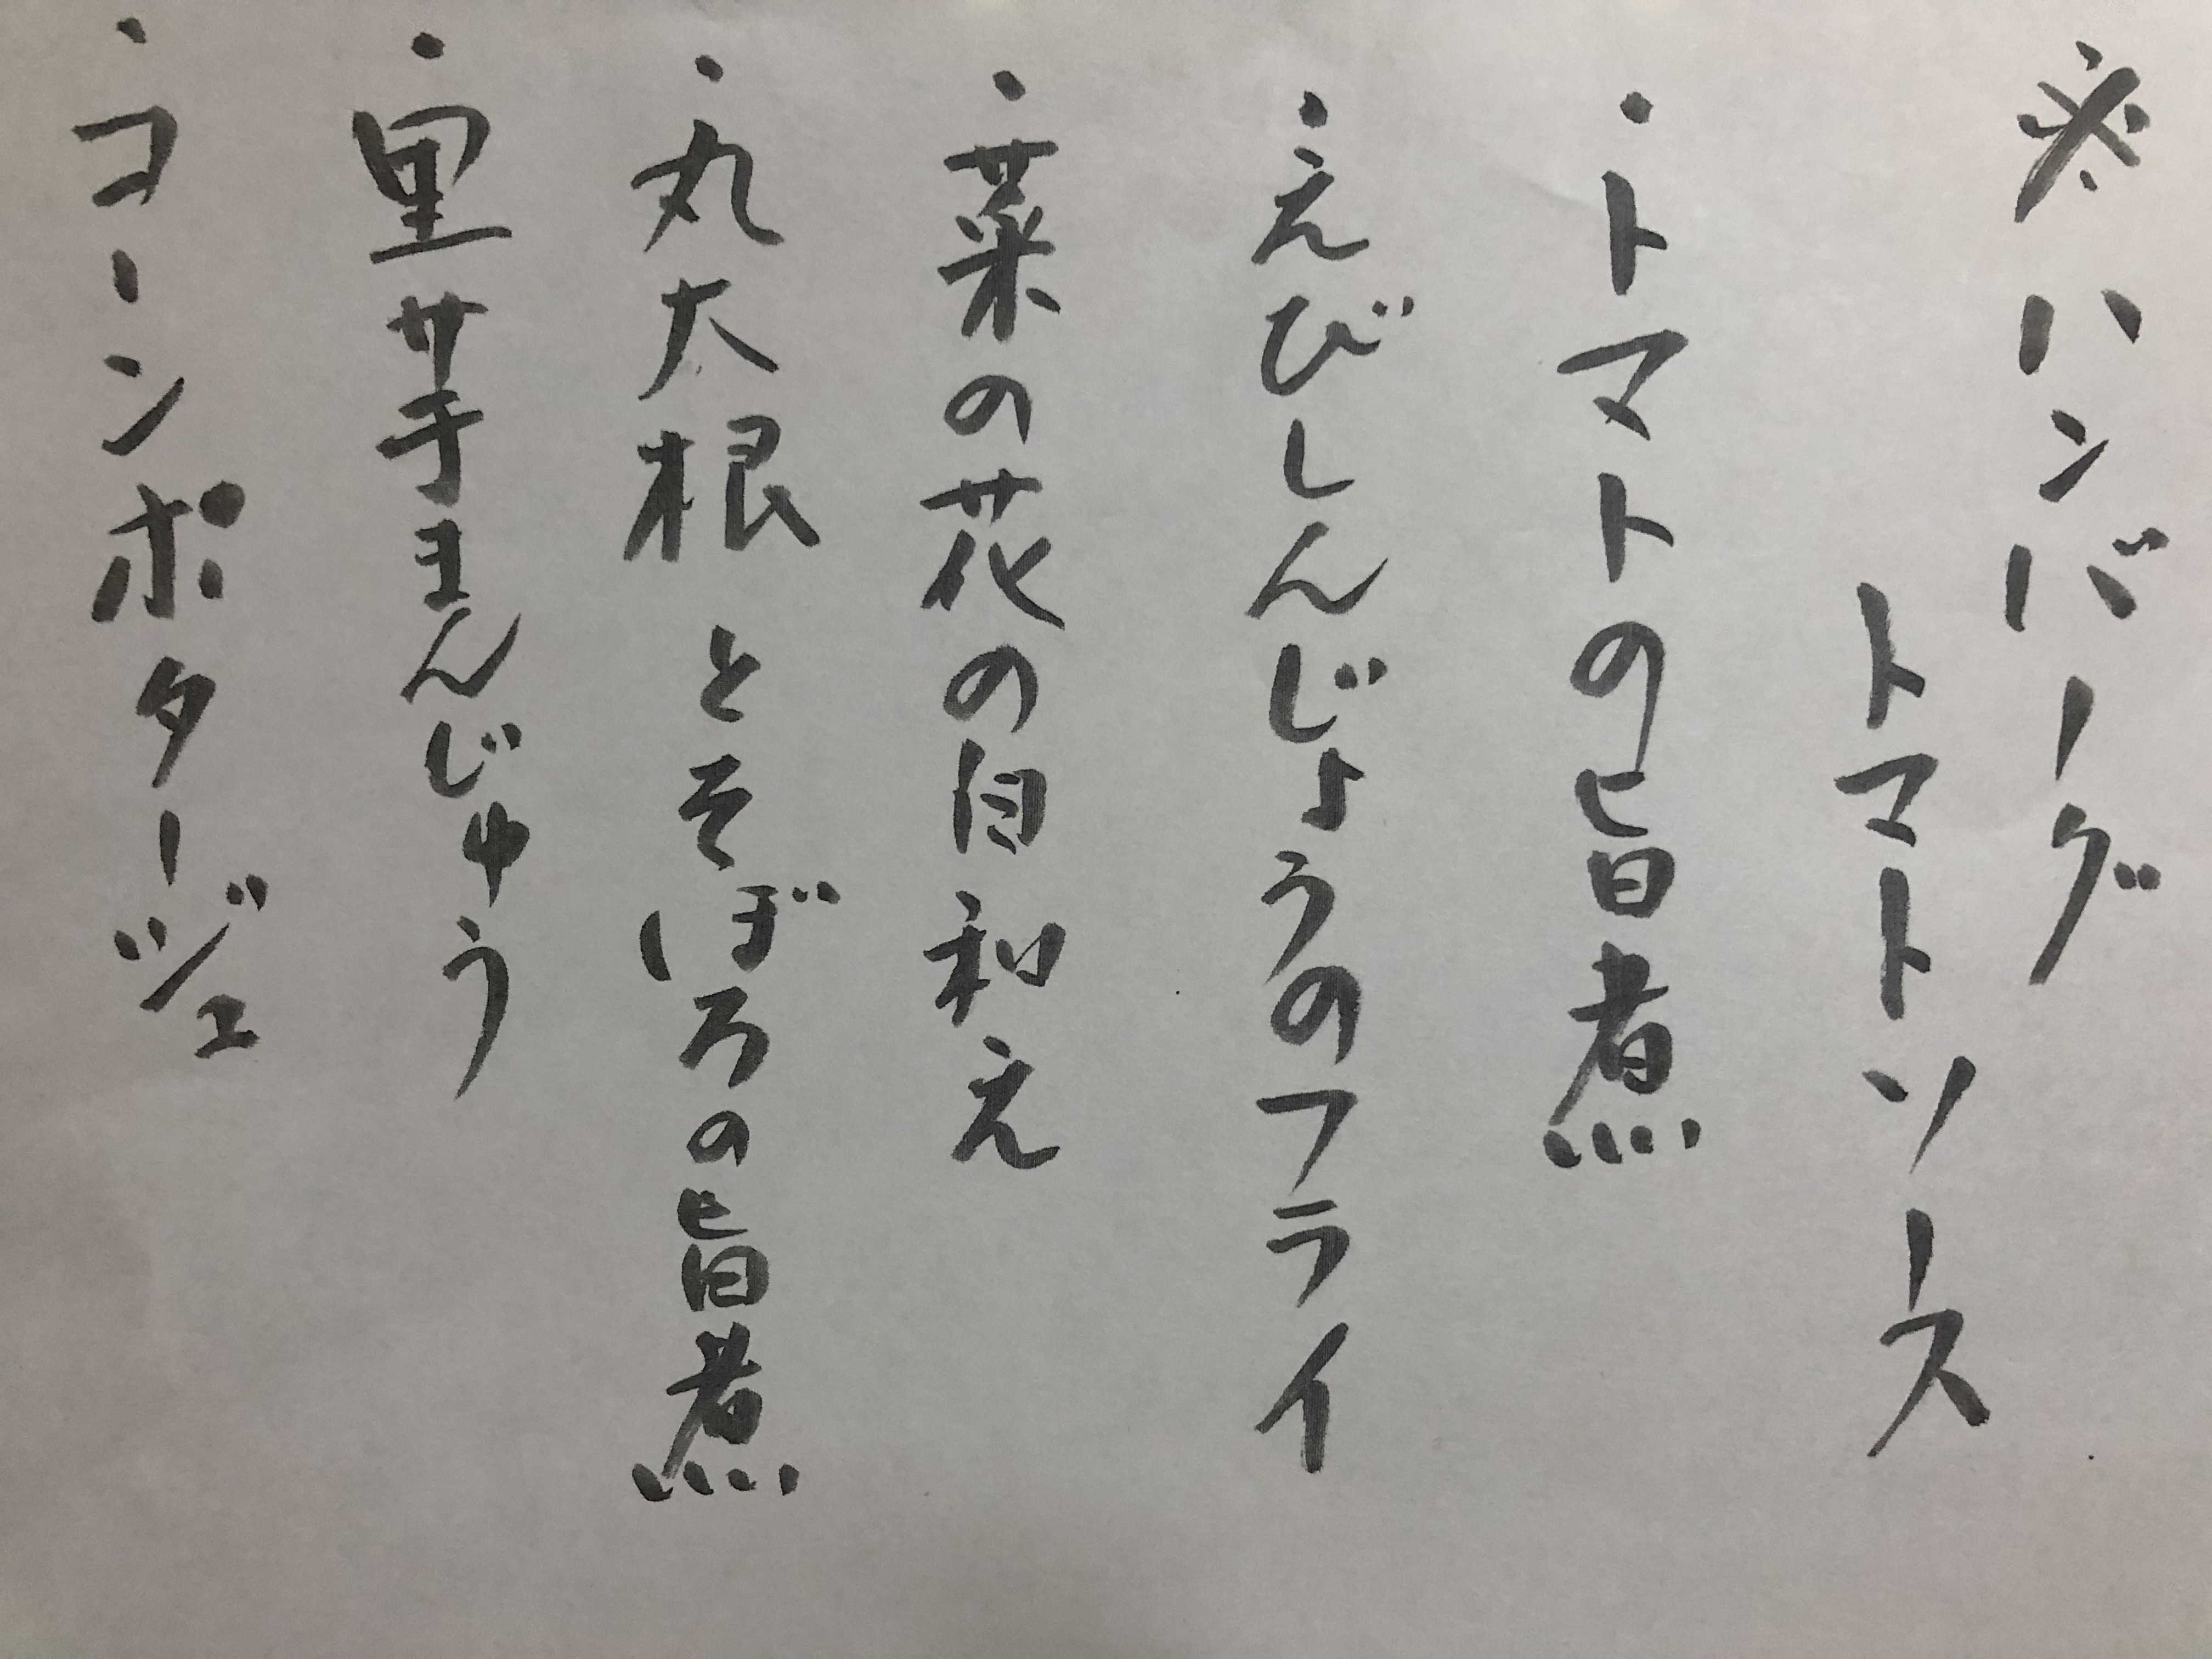 ※ハンバーグ
トマトソース
・トマトの旨煮
・えびしんじょうのフライ
・菜の花の白和え
・丸大根とそぼろの旨煮
・里芋まんじゅう
・コーンポタージュ